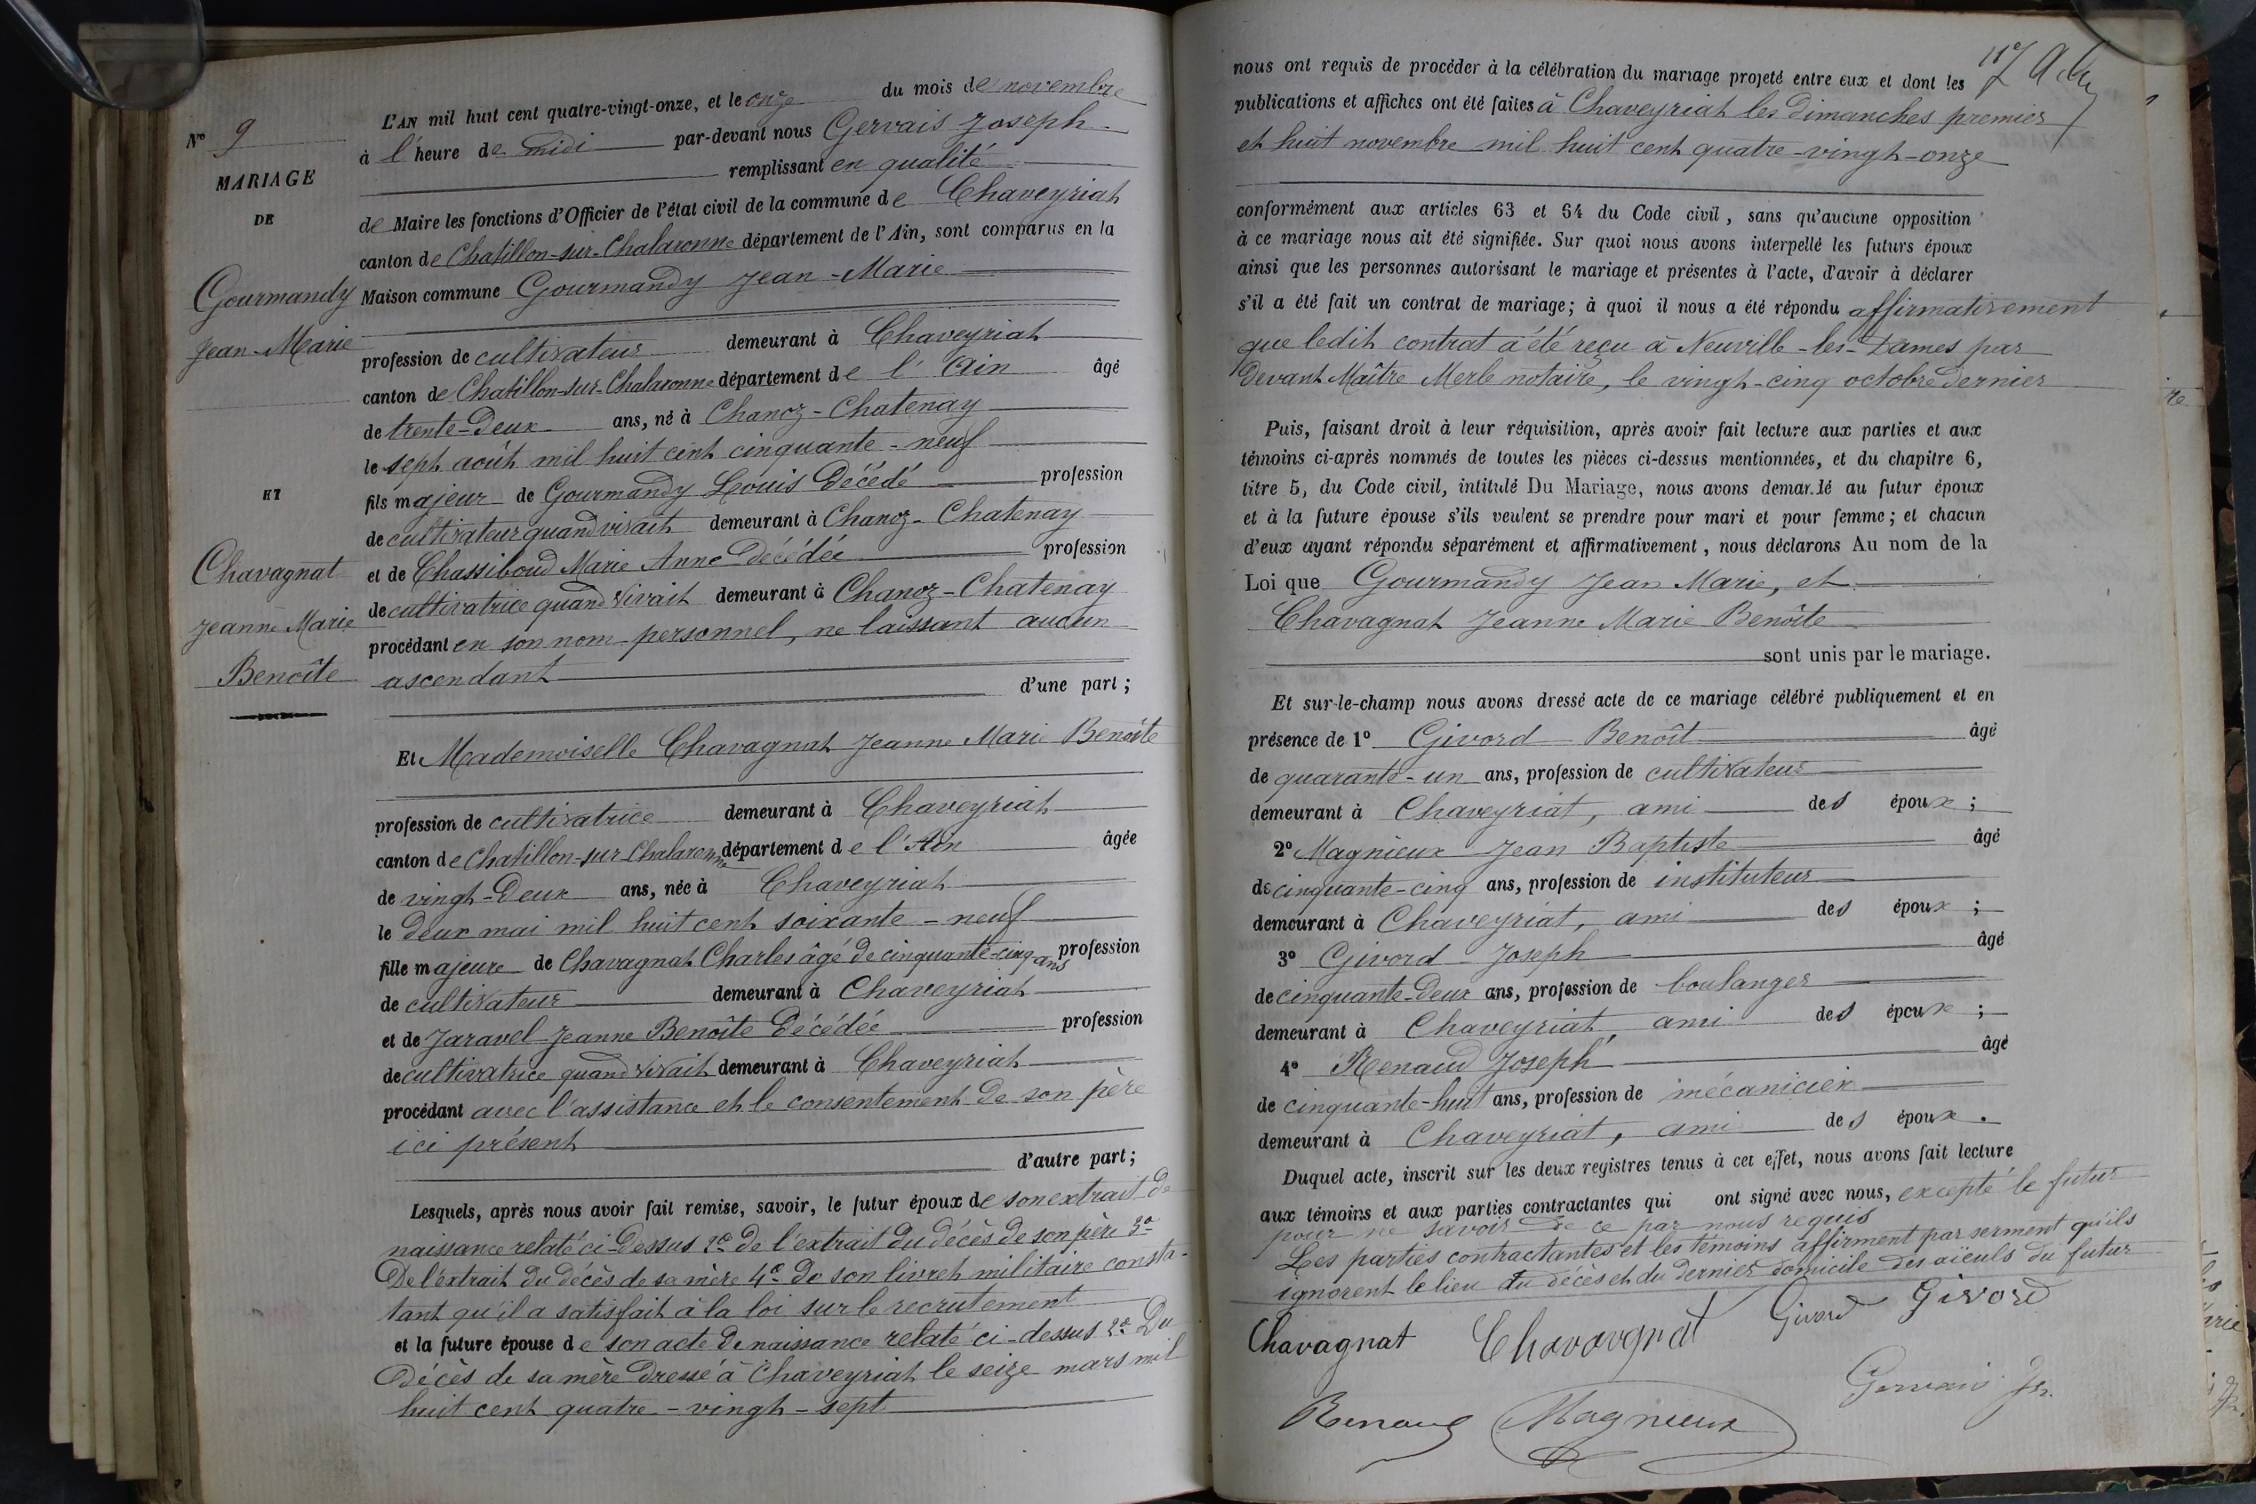 N° 9
MARIAGE
DE
Gourmandy
Jean-Marie
ET
Chavagnat
Jeanne Marie
Benoîte
L'AN mil huit cent quatre-vingt-onze, et le onze du mois de novembre
à l'heure de midi par-devant nous Gervais Joseph
remplissant en qualité
de Maire les fonctions d'Officier de l'état civil de la commune de Chaveyriat
canton de Chatillon-sur-Chalaronne département de l'Ain, sont comparus en la
Maison commune Gourmandy Jean-Marie
profession de cultivateur demeurant à Chaveyriat
canton de Chatillon-sur-Chalaronne département de l'Ain âgé
de trente-deux ans, né à Chanoz-Chatenay
le sept août mil huit cent cinquante-neuf
fils majeur de Gourmandy Louis décédé profession
de cultivateur quand vivait demeurant à Chanoz-Chatenay
et de Chassiboud Marie Anne décédée profession
de cultivatrice quand vivait demeurant à Chanoz-Chatenay
procédant en son nom personnel, ne laissant aucun
ascendant
d'une part ;
Et Mademoiselle Chavagnat Jeanne Marie Benoîte
profession de cultivatrice demeurant à Chaveyriat
canton de Chatillon-sur Chalaronne département de l'Ain âgée
de vingt-deux ans, née à Chaveyriat
le deux mai mil huit cent soixante-neuf
fille majeure de Chavagnat Charles âgé de cinquante-cinq ans profession
de cultivateur demeurant à Chaveyriat
et de Jaravel Jeanne Benoîte décédée profession
de cultivatrice quand vivait demeurant à Chaveyriat
procédant avec l'assistance et le consentement de son père
ici présent
d'autre part ;
Lesquels, après nous avoir fait remise, savoir, le futur époux de son extrait de
naissance relaté ci-dessus 2° de l'extrait du décès de son père 3°
De l'extrait du décès de sa mère 4° de son livret militaire consta-
tant qu'il a satisfait à la loi sur le recrutement
et la future épouse de son acte de naissance relaté ci-dessus 2° Du
Décès de sa mère dressé à Chaveyriat le seize mars mil
huit cent quatre-vingt-sept
nous ont requis de procéder à la célébration du mariage projeté entre eux et dont les
publications et affiches ont été faites à Chaveyriat les dimanches premier
et huit novembre mil huit cent quatre-vingt-onze
conformément aux articles 63 et 64 du Code civil, sans qu'aucune opposition
à ce mariage nous ait été signifiée. Sur quoi nous avons interpellé les futurs époux
ainsi que les personnes autorisant le mariage et présentes à l'acte, d'avoir à déclarer
s'il a été fait un contrat de mariage ; à quoi il nous a été répondu affirmativement
que ledit contrat a été reçu à Neuville-les-Dames par
Devant Maître Merle notaire, le vingt-cinq octobre dernier
Puis, faisant droit à leur réquisition, après avoir fait lecture aux parties et aux
témoins ci-après nommés de toutes les pièces ci-dessus mentionnées, et du chapitre 6,
titre 5, du Code civil, intitulé Du Mariage, nous avons demandé au futur époux
et à la future épouse s'ils veulent se prendre pour mari et pour femme ; et chacun
d'eux ayant répondu séparément et affirmativement, nous déclarons Au nom de la
Loi que Gourmandy Jean Marie, et
Chavagnat Jeanne Marie Benoîte
sont unis par le mariage.
Et sur-le-champ nous avons dressé acte de ce mariage célébré publiquement et en
présence de 1° Givord Benoît âgé
de quarante-un ans, profession de cultivateur
demeurant à Chaveyriat, ami des époux ;
2° Magnieux Jean Baptiste âgé
de cinquante-cinq ans, profession de instituteur
demeurant à Chaveyriat, ami des époux ;
3° Givord Joseph âgé
de cinquante-deux ans, profession de boulanger
demeurant à Chaveyriat, ami des époux ;
4° Renaud Joseph âgé
de cinquante-huit ans, profession de mécanicien
demeurant à Chaveyriat, ami des époux.
Duquel acte, inscrit sur les deux registres tenus à cet effet, nous avons fait lecture
aux témoins et aux parties contractantes qui ont signé avec nous, excepté le futur
pour ne savoir de ce par nous requis
Les parties contractantes et les témoins affirment par serment qu'ils
ignorent le lieu du décès et du dernier domicile des aïeuls du futur
Chavagnat Chavavgnat Givord Givord
Gervais Jh.
Renaud Magnieux